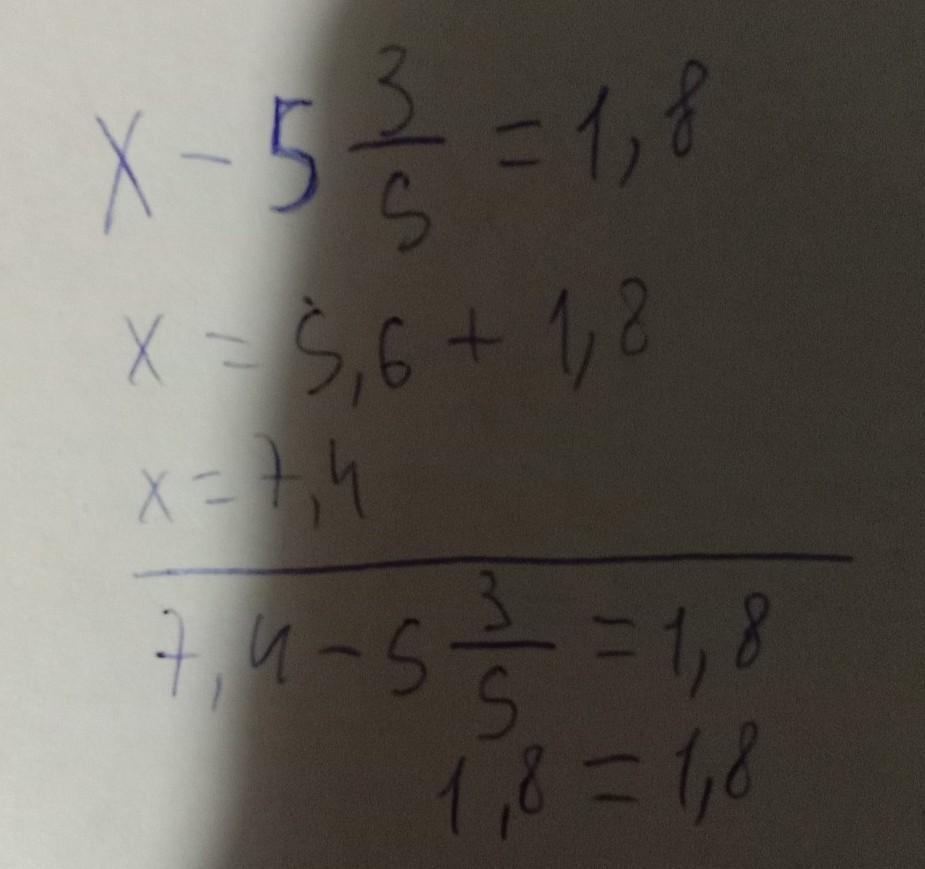 x - 5 3/5 = 1,8
x = 5,6 + 1,8
x = 7,4
7,4 - 5 3/5 = 1,8
1,8 = 1,8